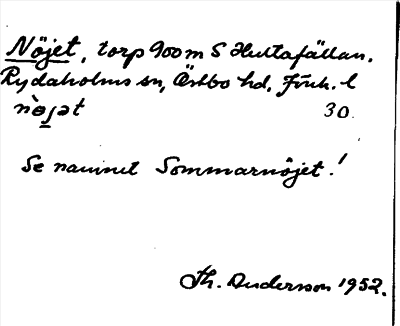 Nöjet, torp 900 m S Hultafällan.
Rydaholms sn, Östbo hd, Jönk. l
nö̀jət 30.
Se namnet Sommarnöjet!
Th. Anderson 1952.